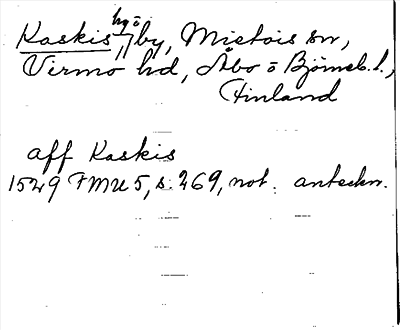 Kaskis, hg o by, Mietois sn,
Virmo hd, Åbo o Björneb. l.,
Finland
aff Kaskis
1549 FMU 5, s. 269, not. anteckn.